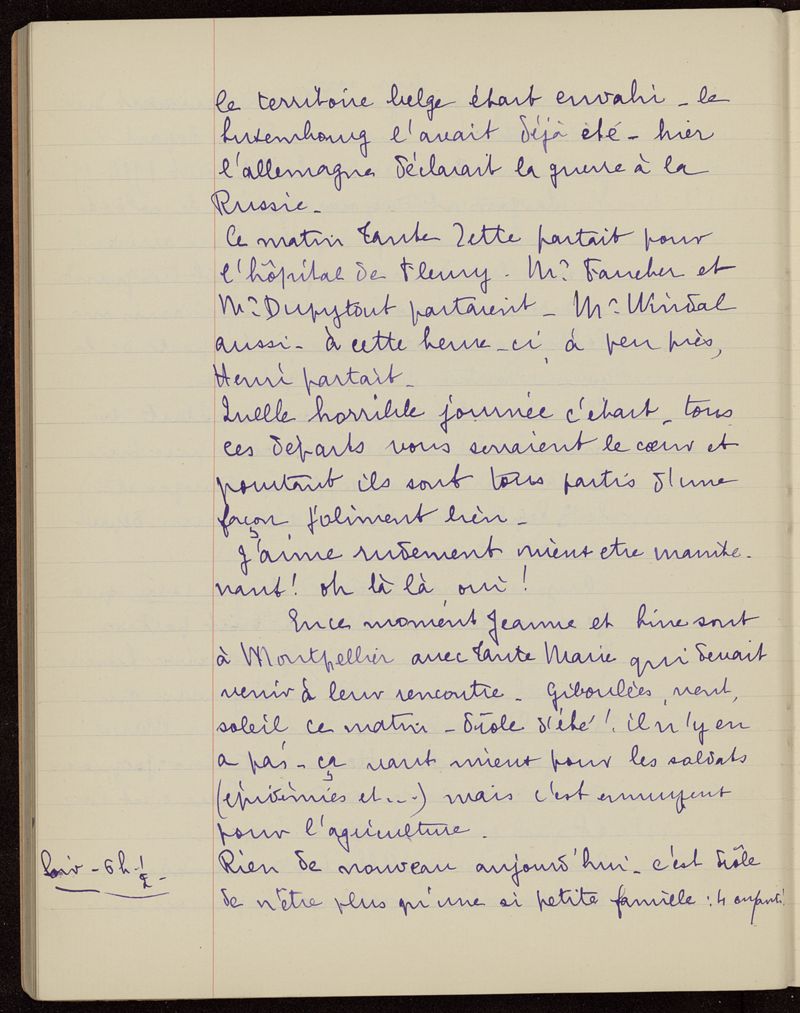 le territoire belge était envahi - le
Luxembourg l'avait déjà été - hier
l'allemagne déclarait la guerre à la
Russie -
Ce matin tante Zette partait pour
l'hôpital de Fleury. Mr Faucher et
Mr Dupytout partaient - Mr Windal
aussi - à cette heure-ci, à peu près,
Henri partait -
Quelle horrible journée c'était - tous
ces départs vous serraient le cœur et
pourtant ils sont tous partis d'une
façon joliment bien -
J'aime rudement mieux etre mainte-
nant! oh là là, oui!
En ce moment Jeanne et Line sont
à Montpellier avec tante Marie qui devait
venir à leur rencontre - Giboulées, vent,
soleil ce matin - drôle d'été! il n'y en
a pas - ça vaut mieux pour les soldats
(épidémies et...) mais c'est ennuyeux
pour l'agriculture.
Soir - 6h 1/2 - Rien de nouveau aujourd'hui - c'est drôle
de n'être plus qu'une si petite famille : 4 enfants!